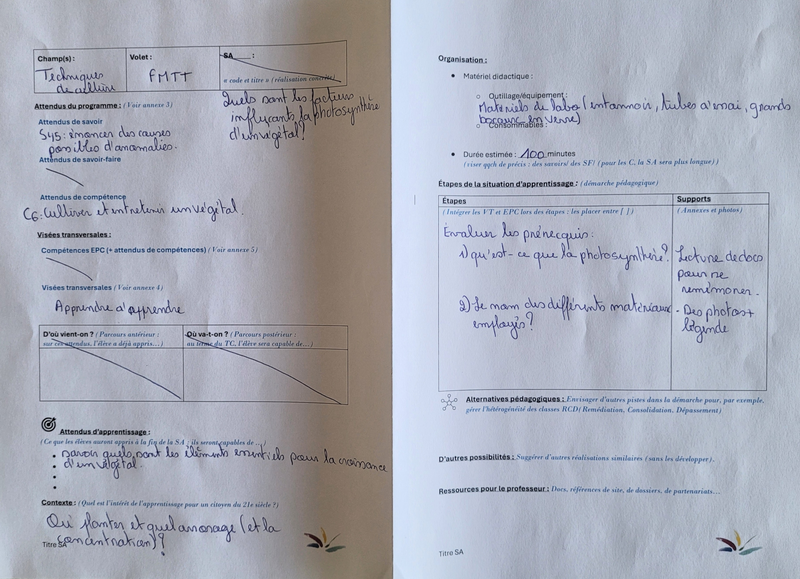 Champ(s) :
Techniques
de culture
Volet :
FMTT
SA :
« code et titre » (réalisation concrète)
Quels sont les facteurs
influçants la photosynthèse
d'un végétal?
Attendus du programme : (Voir annexe 3)
Attendus de savoir
S45: énoncer des causes
possibles d'anomalies.
Attendus de savoir-faire
Attendus de compétence
C6: Cultiver et entretenir un végétal.
Visées transversales :
Compétences EPC (+ attendus de compétences) (Voir annexe 5)
Visées transversales (Voir annexe 4)
Apprendre à apprendre
D'où vient-on ? (Parcours antérieur :
sur ces attendus, l'élève a déjà appris…)
Où va-t-on ? (Parcours postérieur :
au terme du TC, l'élève sera capable de…)
Attendus d'apprentissage :
(Ce que les élèves auront appris à la fin de la SA : ils seront capables de…)
• savoir quels sont les éléments essentiels pour la croissance
• d'un végétal.
•
•
Contexte : (Quel est l'intérêt de l'apprentissage pour un citoyen du 21e siècle ?)
Où planter et quel arrosage (et la
concentration)?
Titre SA
Organisation :
• Matériel didactique :
o Outillage/équipement :
Matériels de labo (entonnoir, tubes à essai, grands
bocaux en verre)
o Consommables :
• Durée estimée : 100 minutes
(viser qqch de précis : des savoirs/ des SF/ (pour les C, la SA sera plus longue))
Étapes de la situation d'apprentissage : (démarche pédagogique)
Étapes
(Intégrer les VT et EPC lors des étapes : les placer entre [ ])
Supports
(Annexes et photos)
Evaluer les prérequis :
1) qu'est-ce que la photosynthèse?
Lecture de docs
pour se
remémorer.
2) Le nom des différents matériaux
employés?
- Des photos +
légende
Alternatives pédagogiques : Envisager d'autres pistes dans la démarche pour, par exemple,
gérer l'hétérogénéité des classes RCD( Remédiation, Consolidation, Dépassement)
D'autres possibilités : Suggérer d'autres réalisations similaires (sans les développer).
Ressources pour le professeur : Docs, références de site, de dossiers, de partenariats…
Titre SA